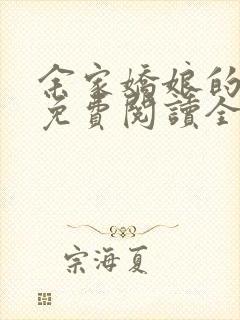 余家嬌娘的
免費閱讀全
宗海夏